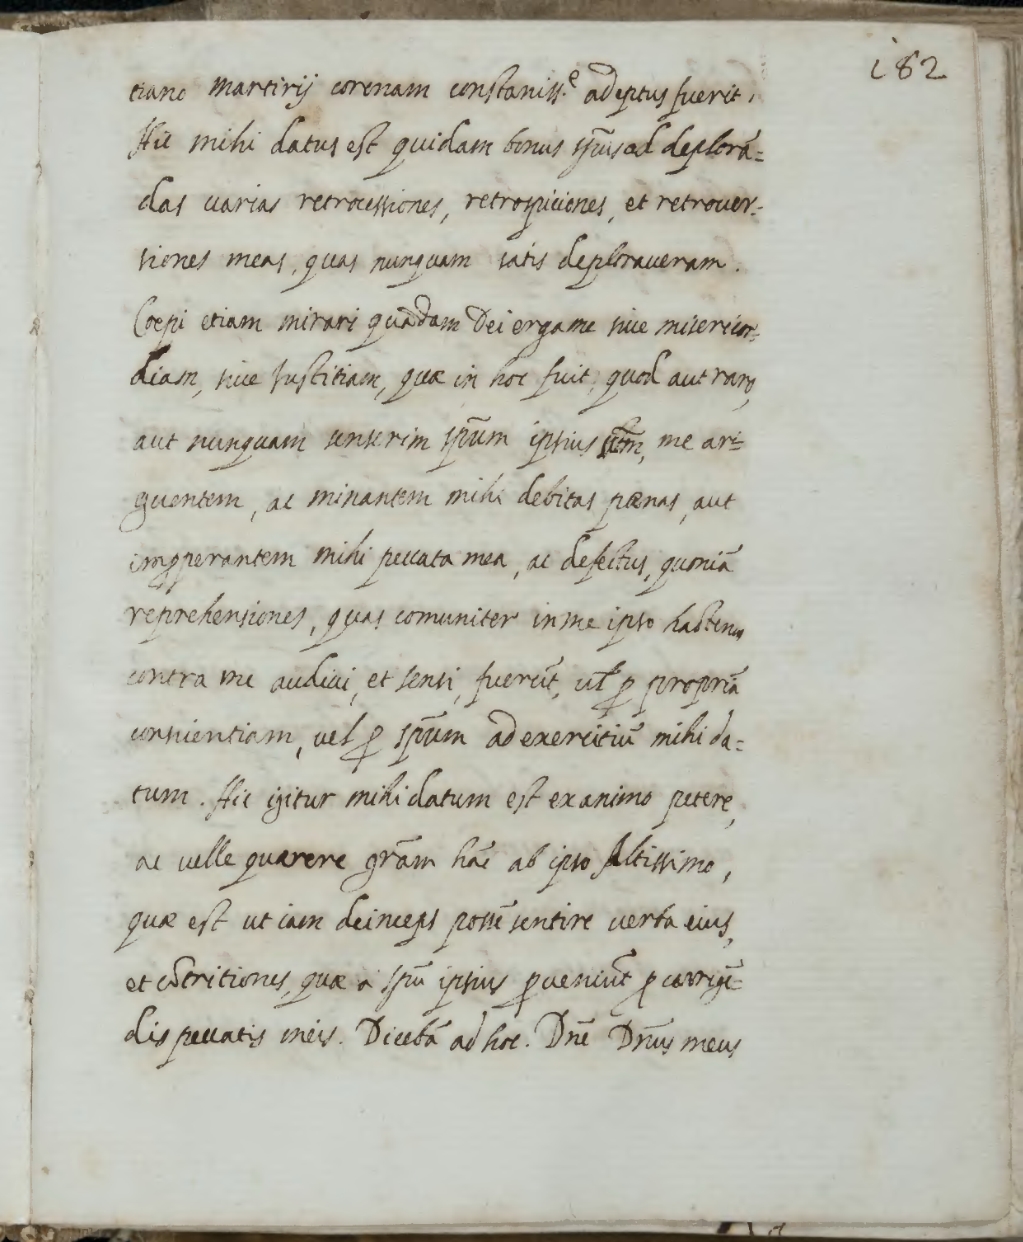 182
tiano martirij coronam constantiss.e adeptus fuerit.
Hic mihi datus est quidam bonus spũs ad deplorã=
das varias retrocessiones, retrospiciones, et retrover=
siones meas, quas nunquam satis deploraveram.
Coepi etiam mirari quãdam Dei erga me sive misericor=
diam, sive Justitiam, quæ in hoc fuit, quod aut raro,
aut nunquam senserim spũm ipsius me ar=
guentem, ac minantem mihi debitas pænas, aut
improperantem mihi peccata mea, ac defectus, quoniã
reprehensiones, quas comuniter in me ipso hactenus
contra me audivi, et sensi, fuerũt, vel ꝑ propriã
conscientiam, vel ꝑ spũm ad exercitiũ mihi da=
tum. Hic igitur mihi datum est ex animo petere,
ac velle quærere grãm hãc ab ipso Altissimo,
quæ est ut iam deinceps possẽ sentire verba eius,
et cõtritiones, quæ a spũ ipsius ꝓveniũt ꝓ corrigẽ=
dis peccatis meis. Dicebã ad hoc. Dñe Dñus meus